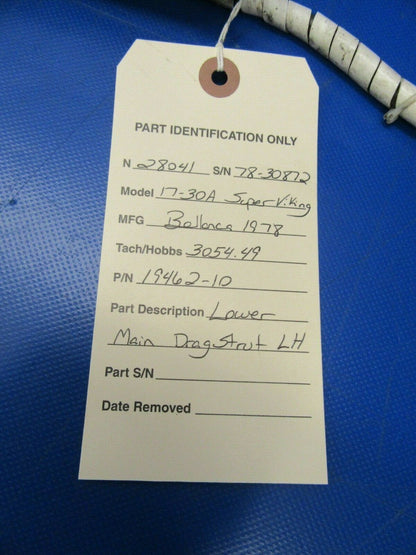 PART IDENTIFICATION ONLY
N 28041 S/N 78-30872
Model 17-30A Super Viking
MFG Bellanca 1978
Tach/Hobbs 3054.49
P/N 19462-10
Part Description Lower
Main Drag Strut LH
Part S/N
Date Removed